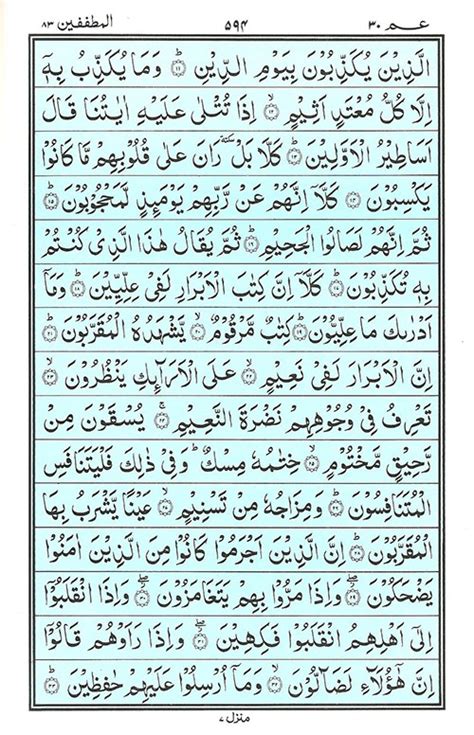 عـم ۳۰ ۵۹۴ المطففين ۸۳
الَّذِيْنَ يُكَذِّبُوْنَ بِيَوْمِ الدِّيْنِ ۝۱۱ وَمَا يُكَذِّبُ بِهٖٓ
اِلَّا كُلُّ مُعْتَدٍ اَثِيْمٍ ۝۱۲ اِذَا تُتْلٰى عَلَيْهِ اٰيٰتُنَا قَالَ
اَسَاطِيْرُ الْاَوَّلِيْنَ ۝۱۳ كَلَّا بَلْ ٚ رَانَ عَلٰى قُلُوْبِهِمْ مَّا كَانُوْا
يَكْسِبُوْنَ ۝۱۴ كَلَّآ اِنَّهُمْ عَنْ رَّبِّهِمْ يَوْمَئِذٍ لَّمَحْجُوْبُوْنَ ۝۱۵
ثُمَّ اِنَّهُمْ لَصَالُوا الْجَحِيْمِ ۝۱۶ ثُمَّ يُقَالُ هٰذَا الَّذِيْ كُنْتُمْ
بِهٖ تُكَذِّبُوْنَ ۝۱۷ كَلَّآ اِنَّ كِتٰبَ الْاَبْرَارِ لَفِيْ عِلِّيِّيْنَ ۝۱۸ وَمَآ
اَدْرٰىكَ مَا عِلِّيُّوْنَ ۝۱۹ كِتٰبٌ مَّرْقُوْمٌ ۝۲۰ يَّشْهَدُهُ الْمُقَرَّبُوْنَ ۝۲۱
اِنَّ الْاَبْرَارَ لَفِيْ نَعِيْمٍ ۝۲۲ عَلَى الْاَرَآئِكِ يَنْظُرُوْنَ ۝۲۳
تَعْرِفُ فِيْ وُجُوْهِهِمْ نَضْرَةَ النَّعِيْمِ ۝۲۴ يُسْقَوْنَ مِنْ
رَّحِيْقٍ مَّخْتُوْمٍ ۝۲۵ خِتٰمُهٗ مِسْكٌ ؕ وَفِيْ ذٰلِكَ فَلْيَتَنَافَسِ
الْمُتَنَافِسُوْنَ ۝۲۶ وَمِزَاجُهٗ مِنْ تَسْنِيْمٍ ۝۲۷ عَيْنًا يَّشْرَبُ بِهَا
الْمُقَرَّبُوْنَ ۝۲۸ اِنَّ الَّذِيْنَ اَجْرَمُوْا كَانُوْا مِنَ الَّذِيْنَ اٰمَنُوْا
يَضْحَكُوْنَ ۝۲۹ وَاِذَا مَرُّوْا بِهِمْ يَتَغَامَزُوْنَ ۝۳۰ وَاِذَا انْقَلَبُوْٓا
اِلٰٓى اَهْلِهِمُ انْقَلَبُوْا فَكِهِيْنَ ۝۳۱ وَاِذَا رَاَوْهُمْ قَالُوْٓا
اِنَّ هٰٓؤُلَآءِ لَضَآلُّوْنَ ۝۳۲ وَمَآ اُرْسِلُوْا عَلَيْهِمْ حٰفِظِيْنَ ۝۳۳
منزل ۷